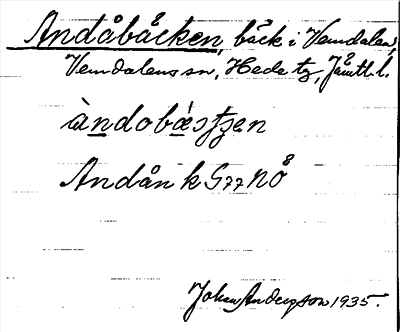 Andåbäcken, bäck i Vemdalen,
Vemdalens sn, Hede tg, Jämtl. l.
àndobæstʒen
Andån k G77 nö
Johan Anderson 1935.